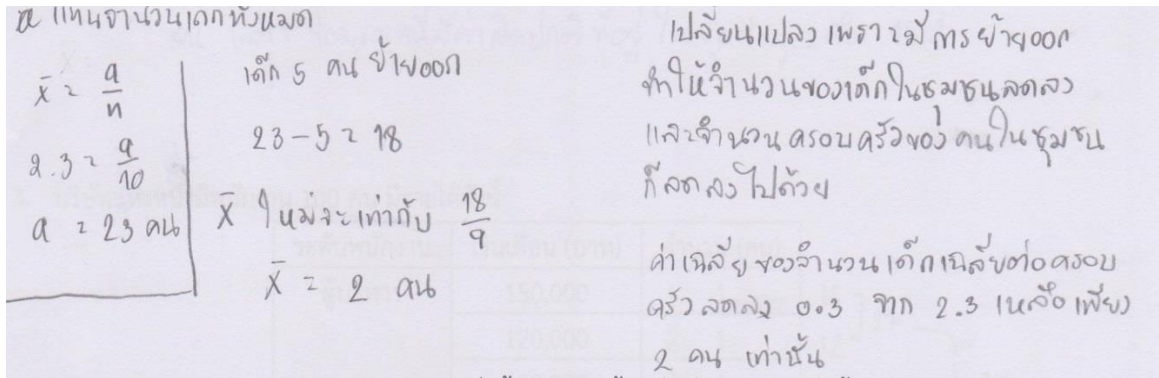 a แทนจำนวนเด็กทั้งหมด
x̄ = a/n
2.3 = a/10
a = 23 คน
เด็ก 5 คน ย้ายออก
23 - 5 = 18
x̄ ใหม่จะเท่ากับ 18/9
x̄ = 2 คน
เปลี่ยนแปลง เพราะมีการย้ายออก
ทำให้จำนวนของเด็กในชุมชนลดลง
และจำนวนครอบครัวของคนในชุมชน
ก็ลดลงไปด้วย
ค่าเฉลี่ยของจำนวนเด็กเฉลี่ยต่อครอบ
ครัวลดลง 0.3 จาก 2.3 เหลือเพียง
2 คน เท่านั้น